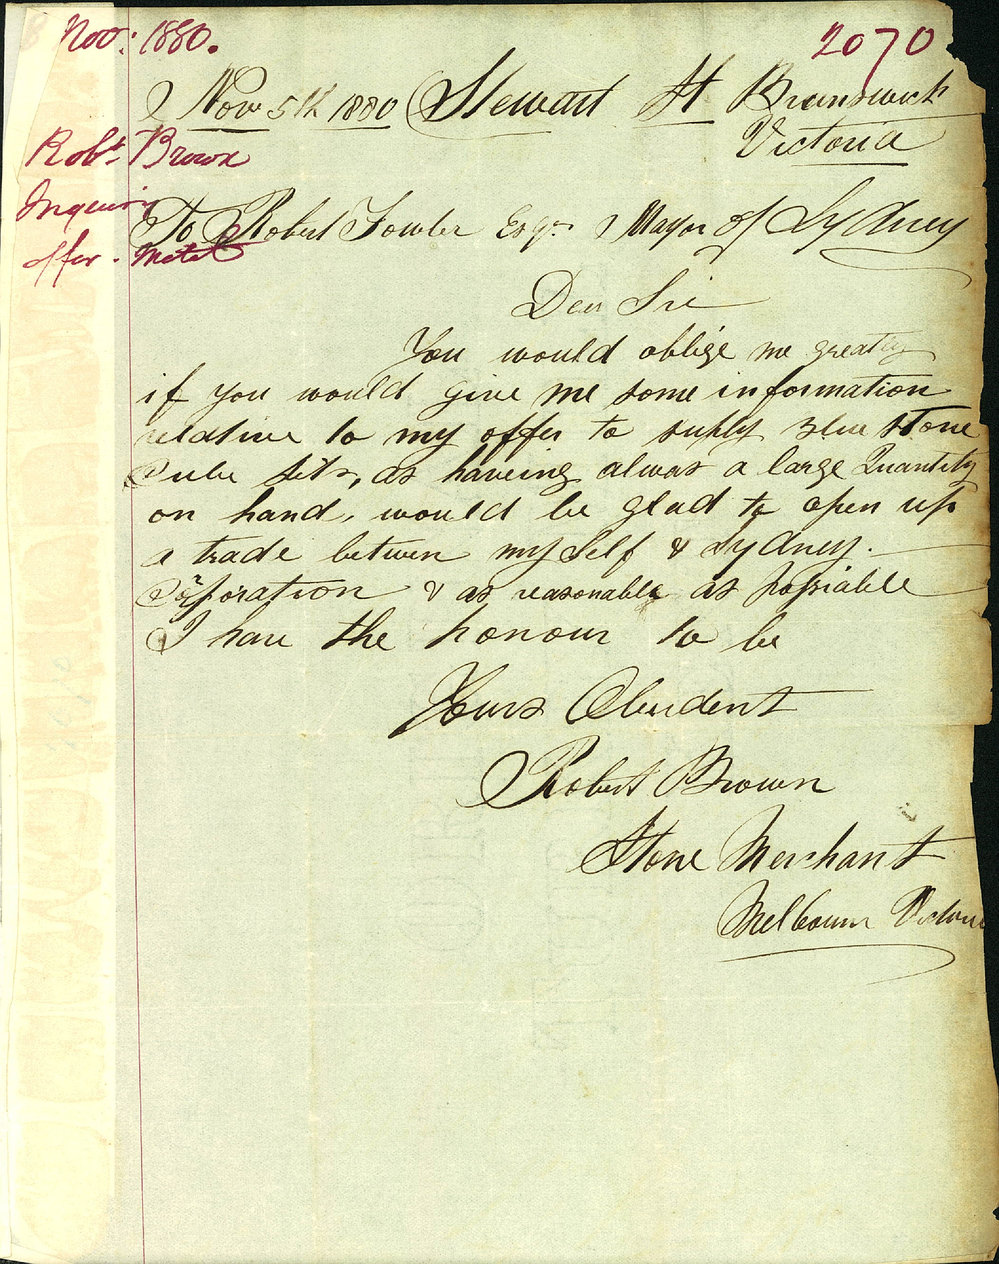 Nov: 1880.
2070
Nov 5th 1880 Stewart St Brunswick
Victoria
Robt Brown
Inquiry
offer. Metal
To Robert Fowler Esqr Mayor of Sydney
Dear Sir
You would oblige me greatly
if you would give me some information
relative to my offer to suply Blue Stone
Cube sets, as haveing alwas a large Quantity
on hand, would be glad to open up
a trade between my self & Sydney.
Corporation & as reasonable as possiable
I have the honour to be
Yours Obeident
Robert Brown
Stone Merchant
Melbourne Victoria